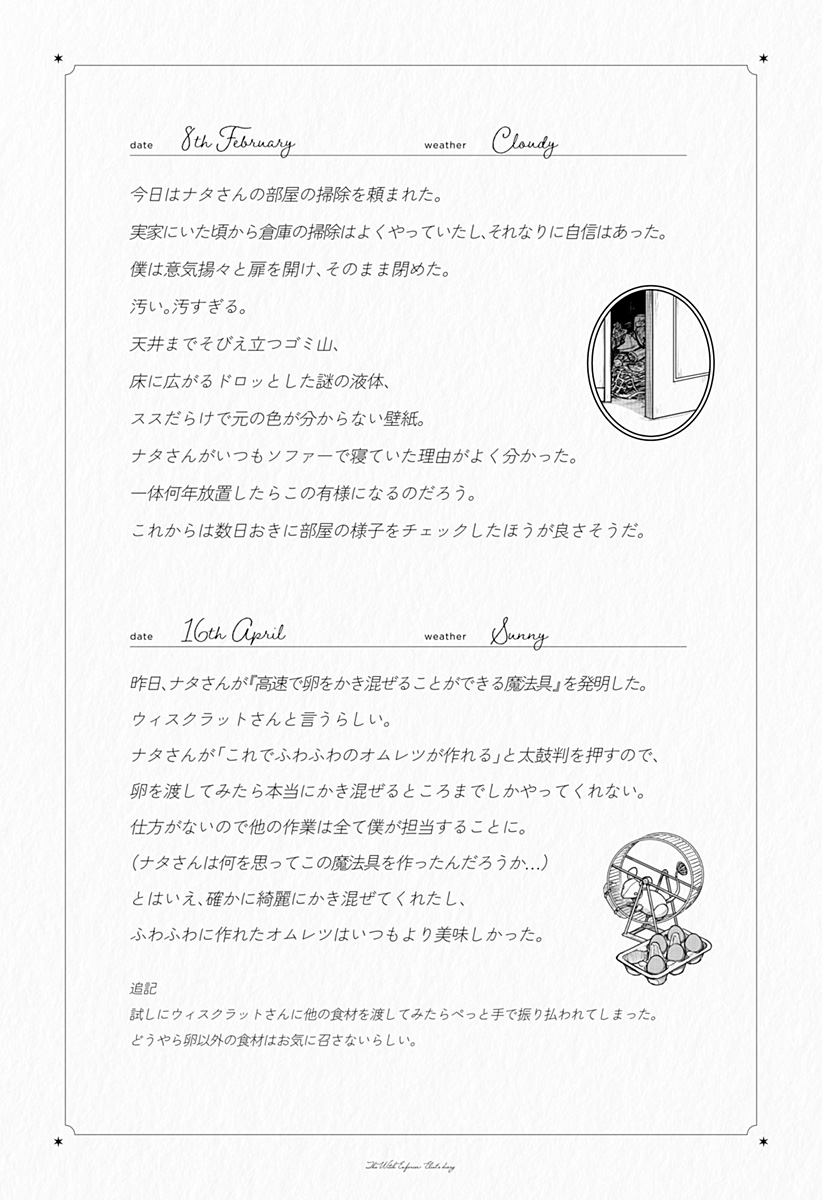 date 8th February weather Cloudy
今日はナタさんの部屋の掃除を頼まれた。
実家にいた頃から倉庫の掃除はよくやっていたし、それなりに自信はあった。
僕は意気揚々と扉を開け、そのまま閉めた。
汚い。汚すぎる。
天井までそびえ立つゴミ山、
床に広がるドロッとした謎の液体、
ススだらけで元の色が分からない壁紙。
ナタさんがいつもソファーで寝ていた理由がよく分かった。
一体何年放置したらこの有様になるのだろう。
これからは数日おきに部屋の様子をチェックしたほうが良さそうだ。
date 16th April weather Sunny
昨日、ナタさんが『高速で卵をかき混ぜることができる魔法具』を発明した。
ウィスクラットさんと言うらしい。
ナタさんが「これでふわふわのオムレツが作れる」と太鼓判を押すので、
卵を渡してみたら本当にかき混ぜるところまでしかやってくれない。
仕方がないので他の作業は全て僕が担当することに。
（ナタさんは何を思ってこの魔法具を作ったんだろうか…）
とはいえ、確かに綺麗にかき混ぜてくれたし、
ふわふわに作れたオムレツはいつもより美味しかった。
追記
試しにウィスクラットさんに他の食材を渡してみたらぺっと手で振り払われてしまった。
どうやら卵以外の食材はお気に召さないらしい。